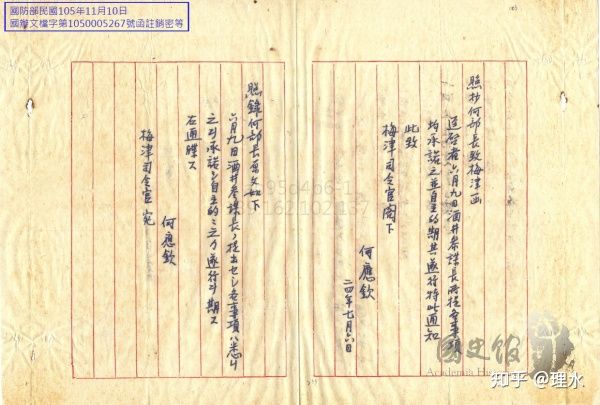 國防部民國105年11月10日
國辦文檔字第1050005267號函註銷密等
照抄何部長致梅津函
逕啓者六月九日酒井參謀長所提各事項
均承諾之並自主的期其遂行特此通知
此致
梅津司令官閣下
何應欽
二四年七月六日
照錄何部長文如下
六月九日酒井參謀長ヨリ提出セシ各事項ハ悉ク
之ヲ承諾シ自主的ニ之カ遂行ヲ期ス
右通牒ス
何應欽
梅津司令官 宛
國史館
Academia
知乎 @理水